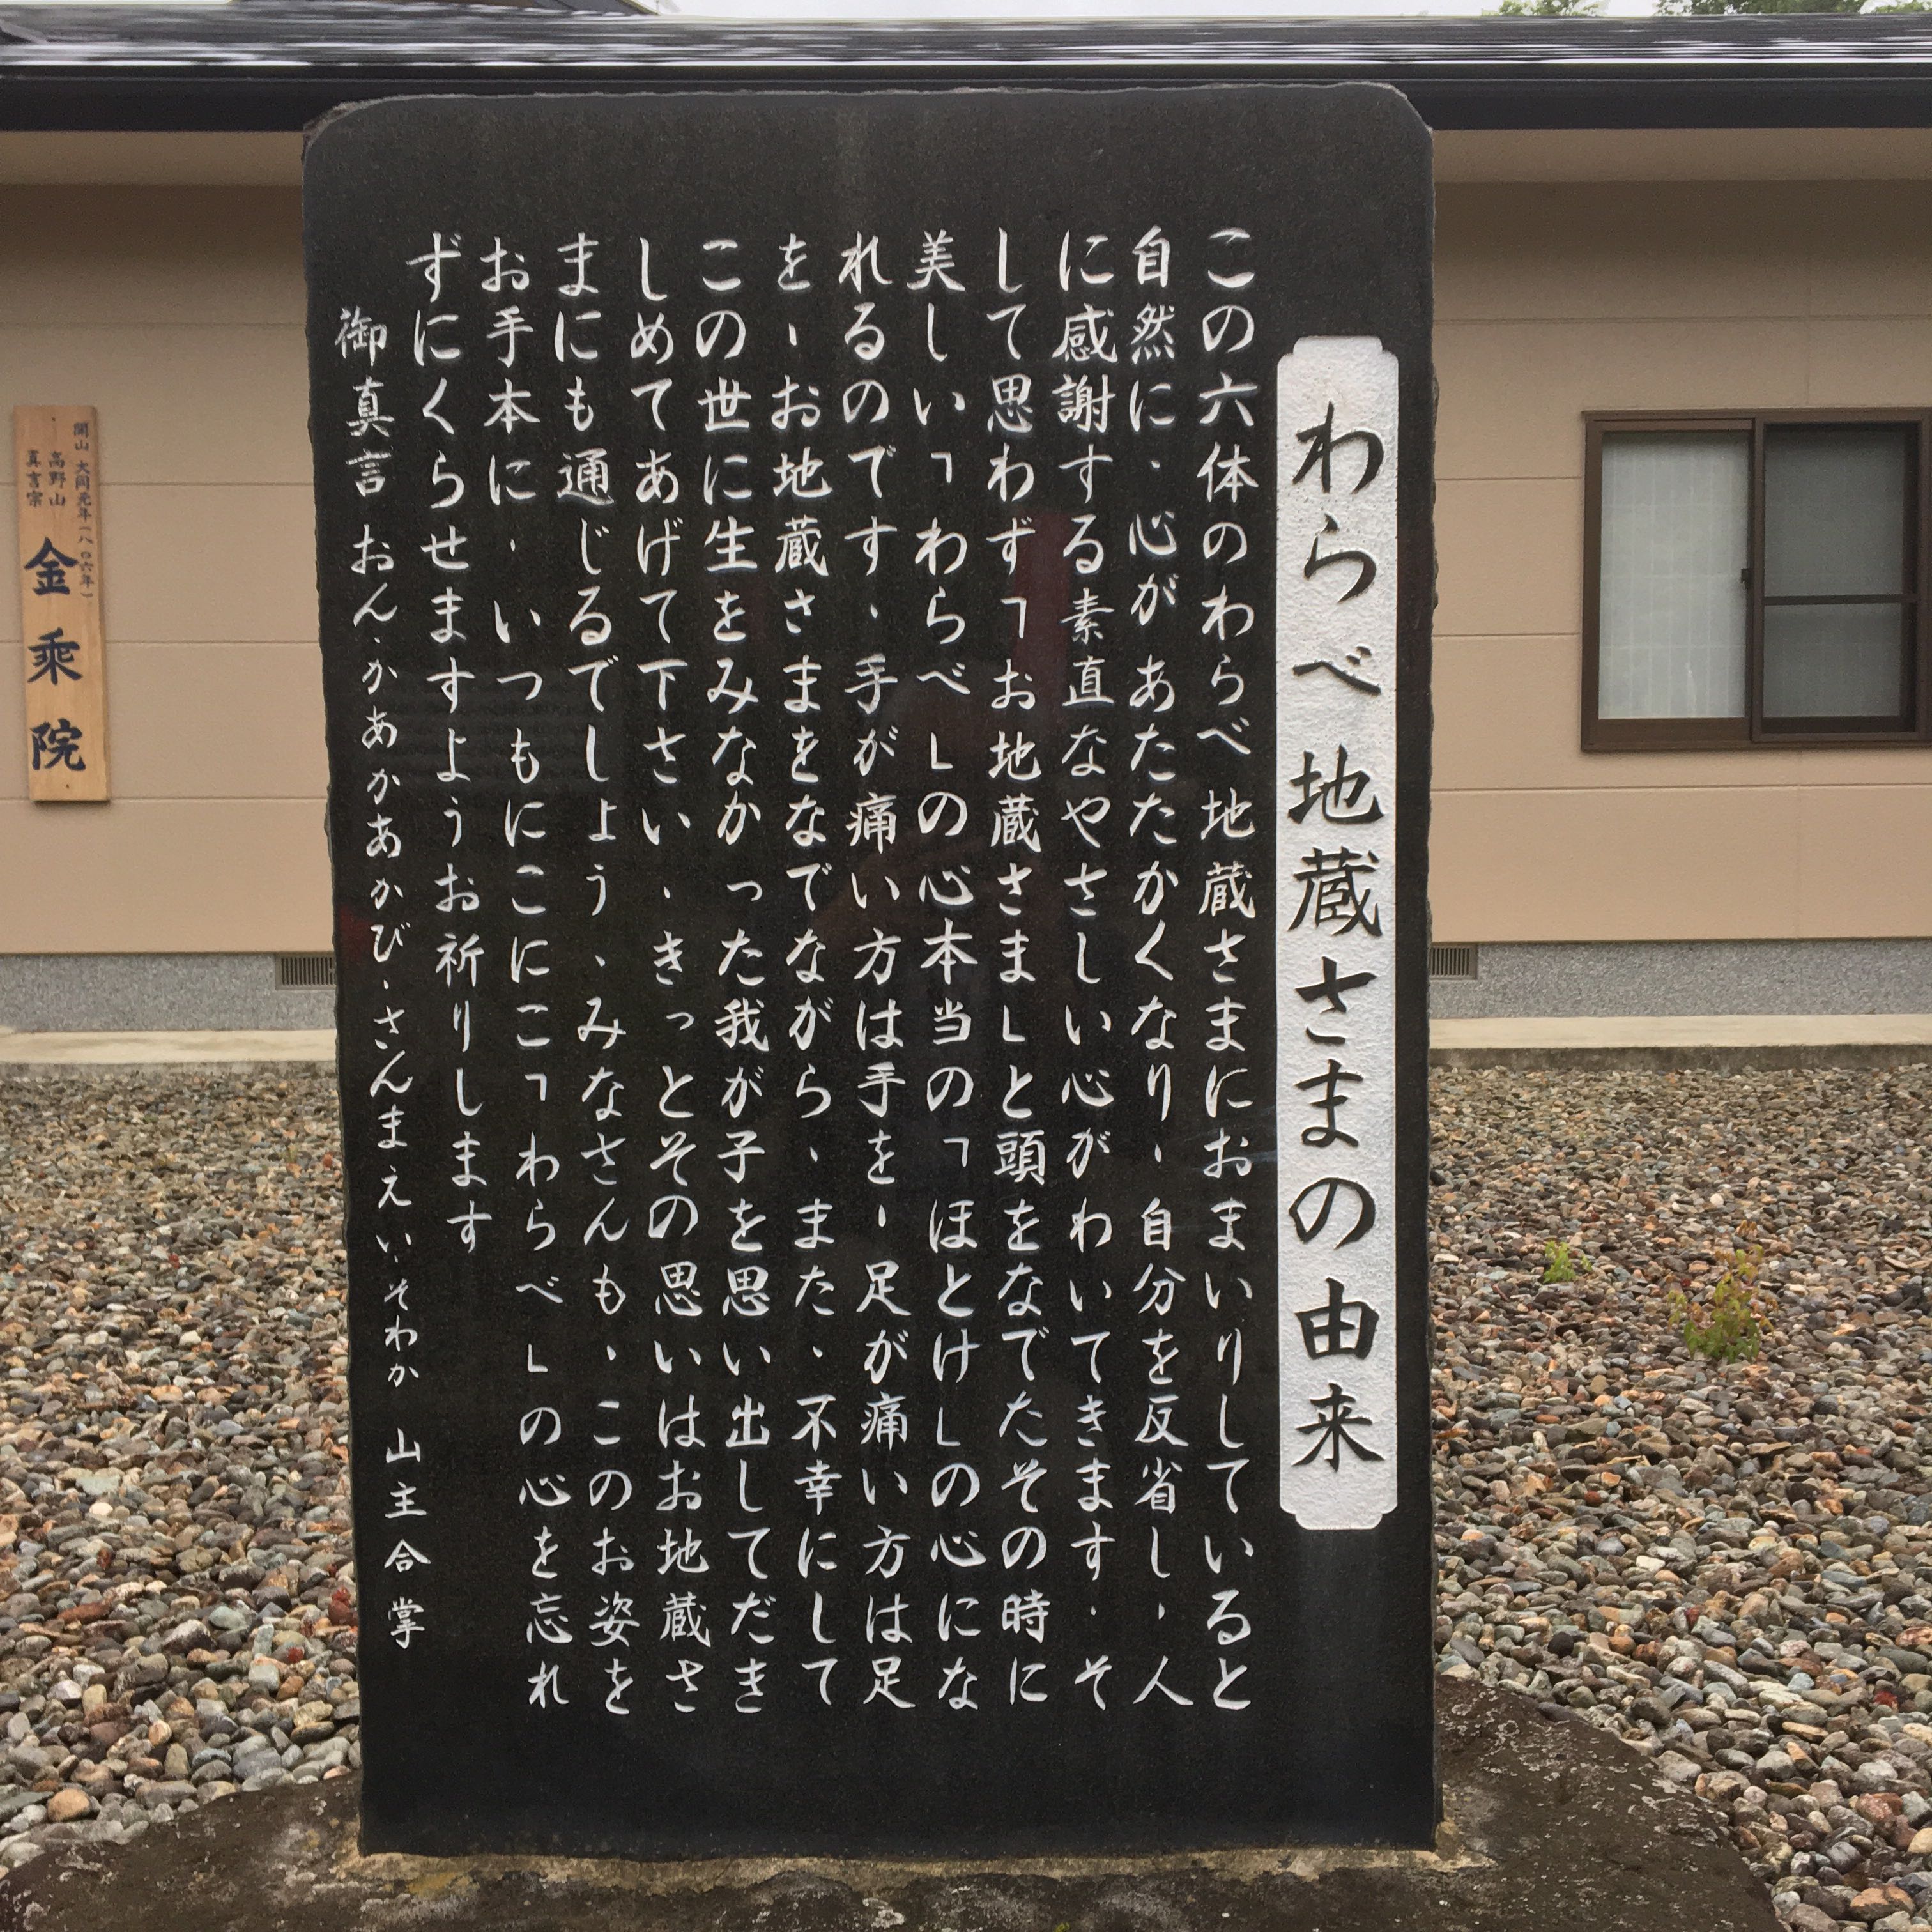 わらべ地蔵さまの由来
この六体のわらべ地蔵さまにおまいりしていると
自然に、心があたたかくなり、自分を反省し、人
に感謝する素直なやさしい心がわいてきます、そ
して思わず「お地蔵さま」と頭をなでたその時に
美しい「わらべ」の心本当の「ほとけ」の心にな
れるのです、手が痛い方は手を、足が痛い方は足
を、お地蔵さまをなでながら、また、不幸にして
この世に生をみなかった我が子を思い出してだき
しめてあげて下さい、きっとその思いはお地蔵さ
まにも通じるでしょう、みなさんも、このお姿を
お手本に、いつもにこにこ「わらべ」の心を忘れ
ずにくらせますようお祈りします
御真言おん、かあかあかび、さんまえい、そわか 山主合掌
開山 大同元年(八〇六年)
高野山
真言宗
金乘院